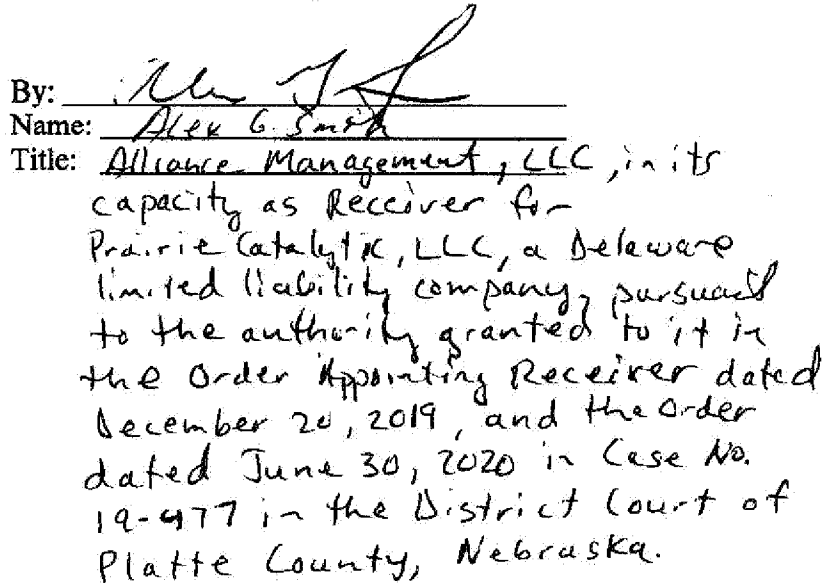 By:
Name: Alex G. Smith
Title: Alliance Management, LLC, in its
capacity as Receiver for
Prairie Catalytic, LLC, a Delaware
limited liability company, pursuant
to the authority granted to it in
the Order Appointing Receiver dated
December 20, 2019, and the Order
dated June 30, 2020 in Case No.
19-477 in the District Court of
Platte County, Nebraska.